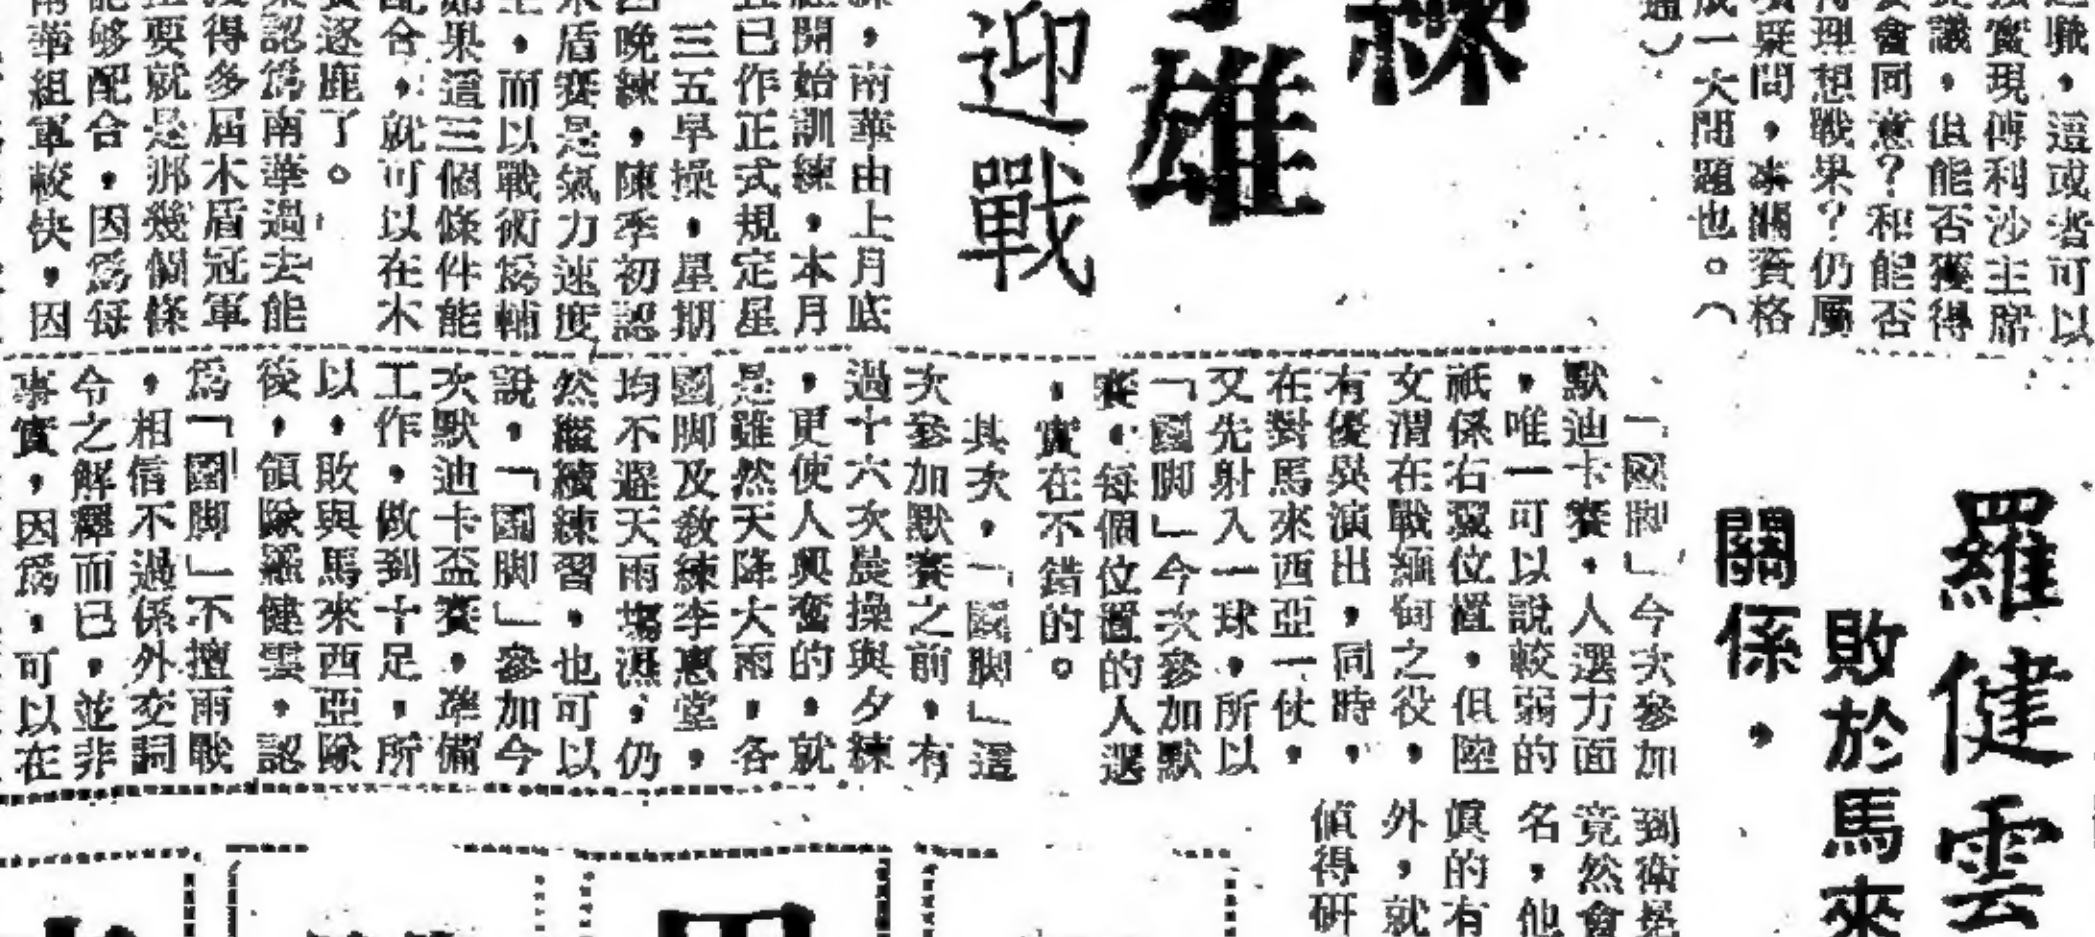 進職，這或者可以
強實現傅利沙主席
建議，但能否獲得
委會同意？和能否
得理想戰果？仍屬
項疑問，本關資格
成一大問題也。（
通）
練
雄
迎戰
練，南華由上月底
經開始訓練，本月
且已作正式規定星
三五早操，星期
四晚練，陳季初認
木盾賽是氣力速度
主，而以戰術爲輔
如果這三個條件能
配合，就可以在木
賽逐鹿了。
某認爲南華過去能
獲得多屆木盾冠軍
主要就是那幾個條
能够配合，因爲每
南華組軍較快，因
羅健雲
敗於馬來
關係，
「國脚」今次參加
默迪卡賽，人選方面
，唯一可以說較弱的
祇係右翼位置，但陸
文渭在戰緬甸之役，
有優異演出，同時，
在對馬來西亞一仗，
又先射入一球，所以
「國脚」今次參加默
賽，每個位置的人選
，實在不錯的。
其次，「國脚」這
次參加默賽之前，有
過十六次晨操與夕練
，更使人興奮的，就
是雖然天降大雨，各
國脚及敎練李惠堂，
均不避天雨塲濕，仍
然繼續練習，也可以
說，「國脚」參加今
次默迪卡盃賽，準備
工作，做到十足，所
以，敗與馬來西亞隊
後，領隊羅健雲，認
爲「國脚」不擅雨戰
，相信不過係外交詞
令之解釋而已，並非
事實，因爲，可以在
到衛是
竟然會
名，他
眞的有
外，就
值得研